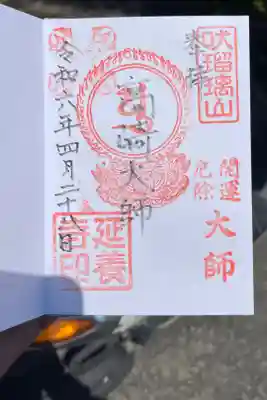 吠瑠璃山
奉拝
開運
厄除
大師
大師
延養
寺印
令和六年四月二十八日